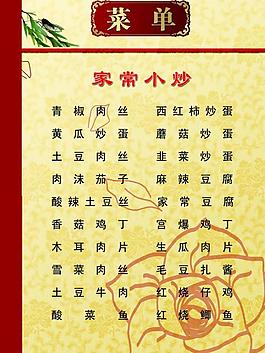 菜单
家常小炒
青椒肉丝 西红柿炒蛋
黄瓜炒蛋 蘑菇炒蛋
土豆肉丝 韭菜炒蛋
肉沫茄子 麻辣豆腐
酸辣土豆丝 家常豆腐
香菇鸡丁 宫爆鸡丁
木耳肉片 生瓜肉片
雪菜肉丝 毛豆扎酱
土豆牛肉 红烧仔鸡
酸菜鱼 红烧鲫鱼